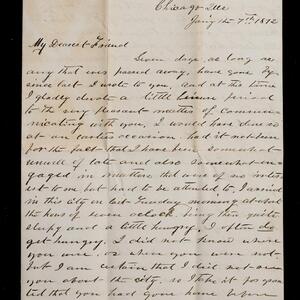 Chicago Ill
Jany 7th 1872
My Dearest Friend
Seven days, as long as
any that ever passed away, have gone by
since last I wrote to you, and at this time
I gladly devote a little leisure period
to the very pleasant matter of commu-
nicating with you. I would have done so
at an earlier occasion had it not been
for the fact that I have been somewhat
unwell of late and also somewhat en-
gaged in matters that were of no inter
est to me but had to be attended to. I arrived
in this city on last Tuesday morning at about
the hour of seven oclock, being then quite
sleepy and a little hungry. I often do
get hungry. I did not know where
you were, or when you were not
but I am certain that I did not see
you about the city, so I take it for gran
ted that you had gone home before